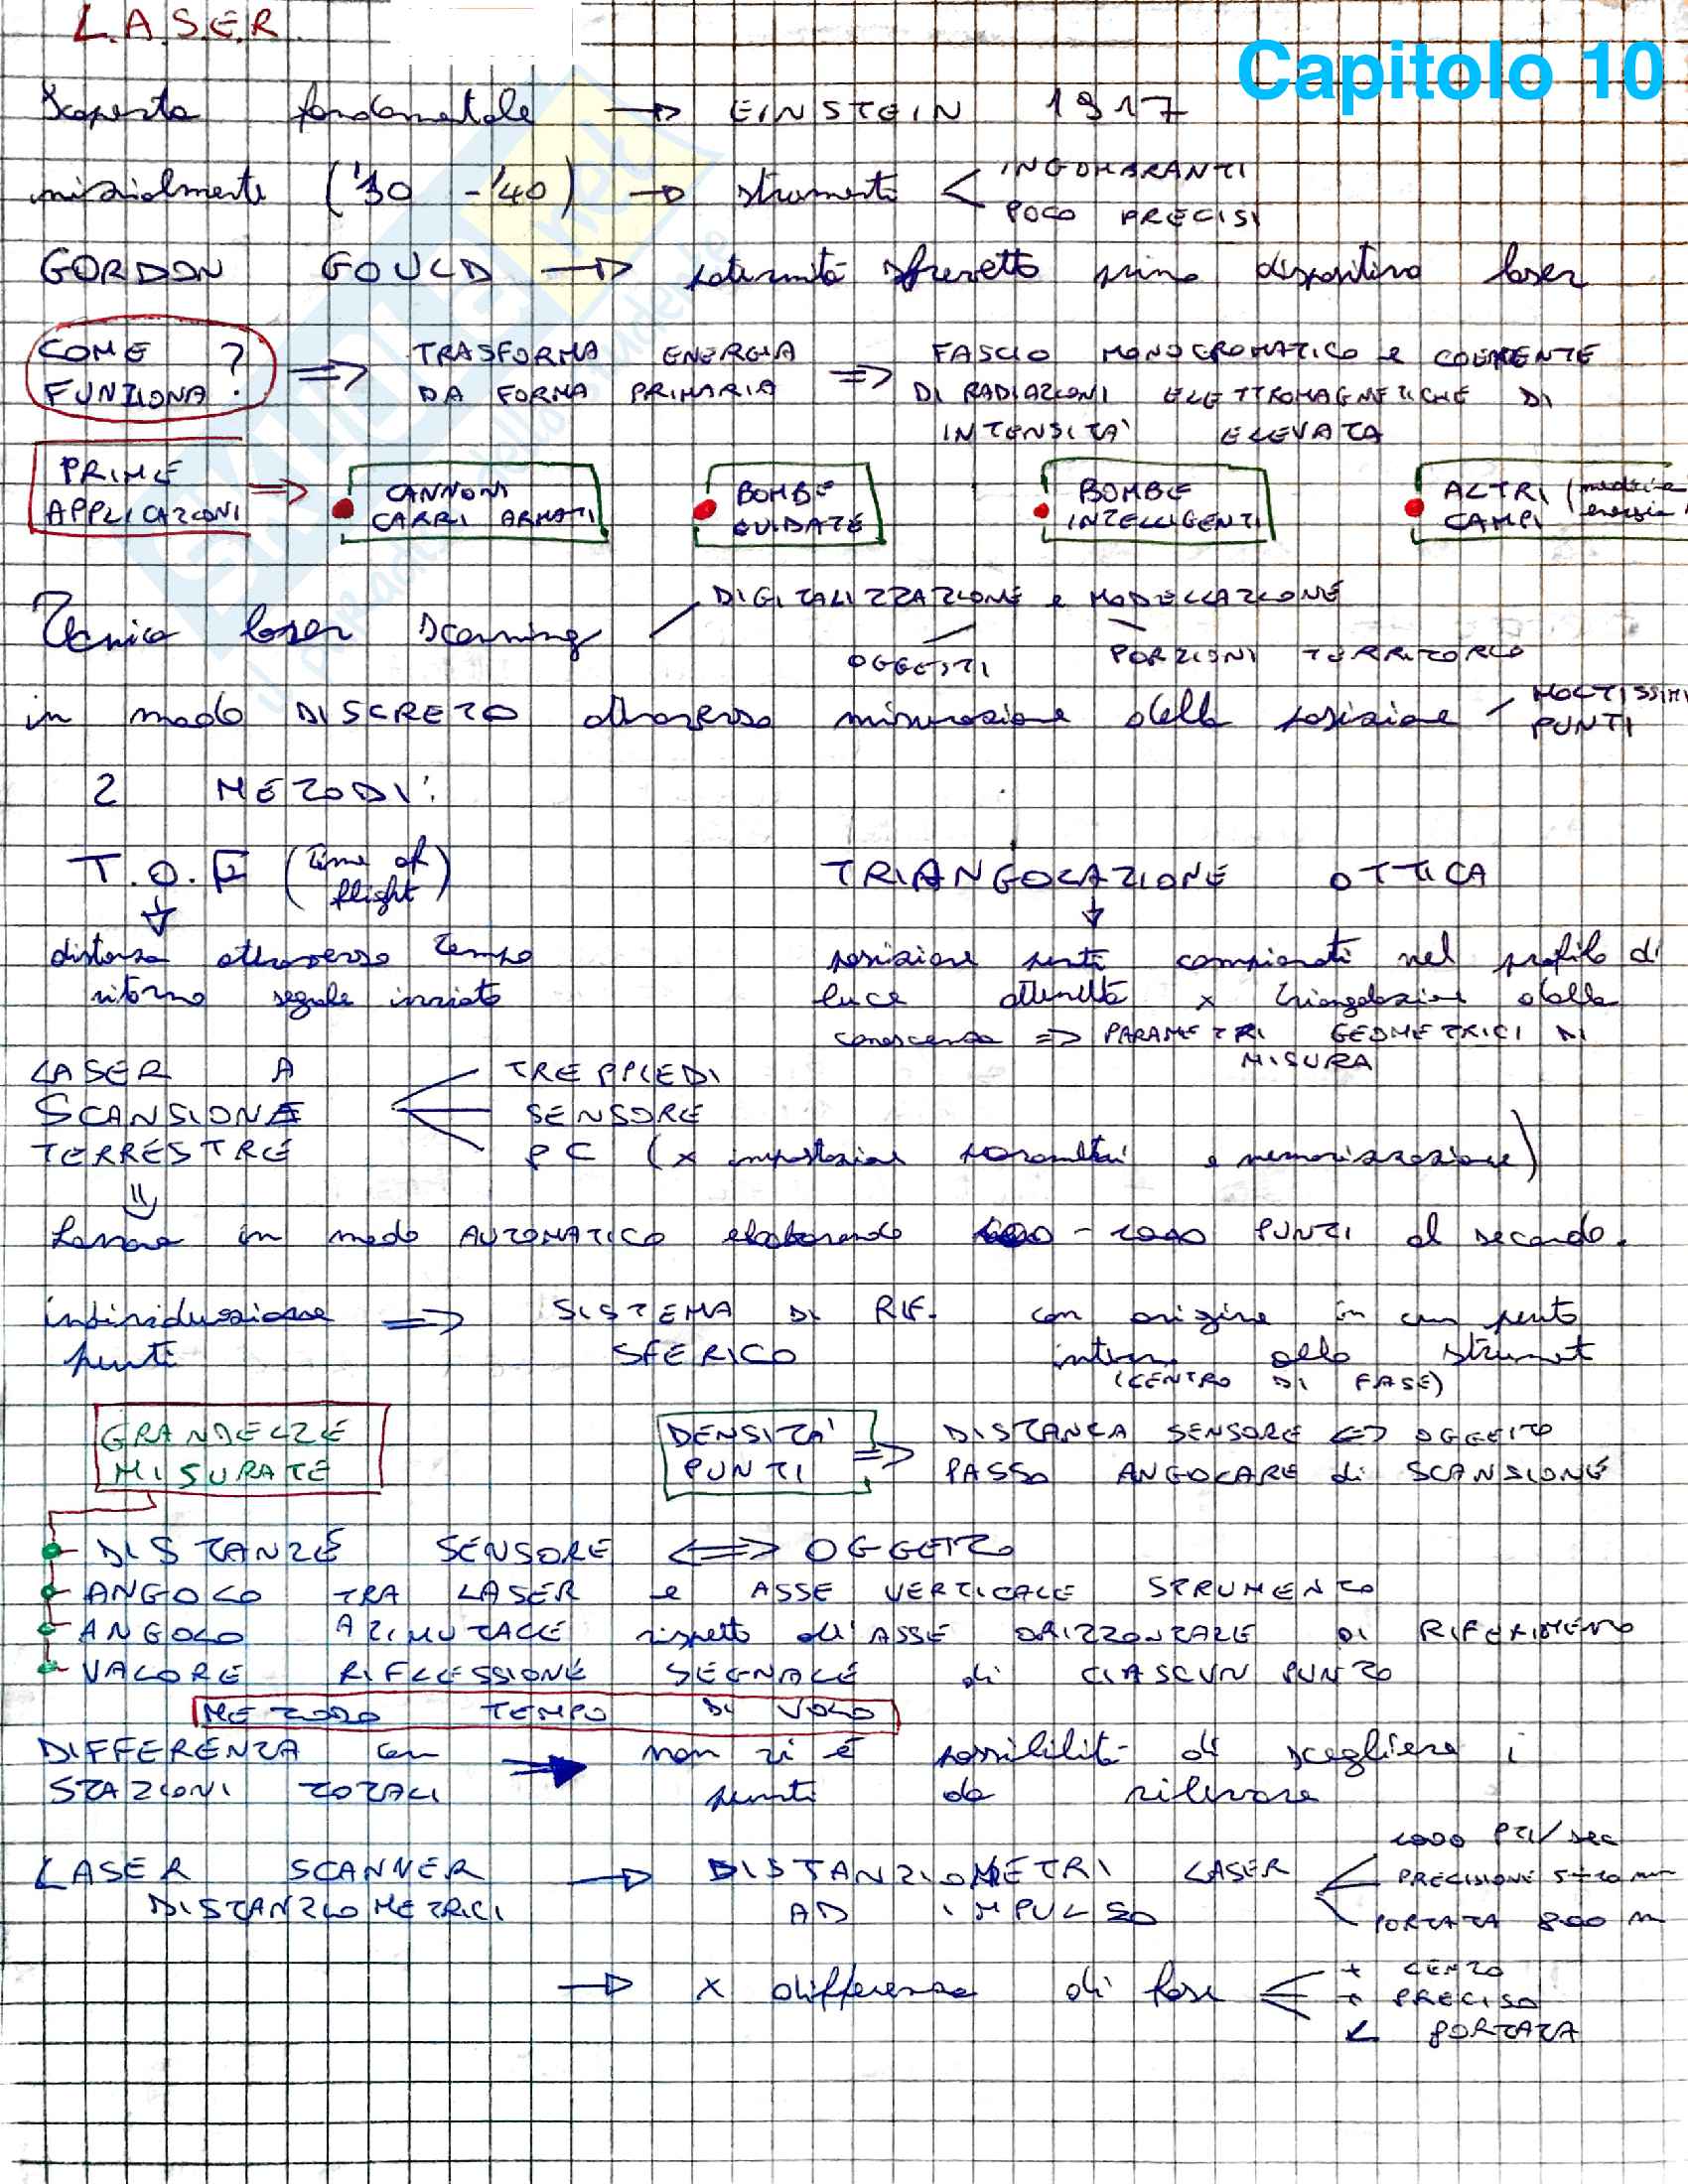 L.A.S.E.R.
Capitolo 10
Scoperta fondamentale → EINSTEIN 1917
inizialmente ('30 - '40) → strumenti < INGOMBRANTI
POCO PRECISI
GORDON GOULD → paternità brevetto primo dispositivo laser
COME FUNZIONA? ⇒ TRASFORMA ENERGIA ⇒ FASCIO MONOCROMATICO e COERENTE
DA FORMA PRIMARIA DI RADIAZIONI ELETTROMAGNETICHE DI
INTENSITA' ELEVATA
PRIME APPLICAZIONI ⇒
CANNONI CARRI ARMATI
BOMBE GUIDATE
BOMBE INTELLIGENTI
ALTRI CAMPI (medicina energia
Tecnica laser scanning / DIGITALIZZAZIONE e MODELLAZIONE
OGGETTI PORZIONI TERRITORIO
in modo DISCRETO attraverso misurazione della posizione / MOLTISSIMI
PUNTI
2 METODI:
T.O.F (time of flight)
↓
distanza attraverso tempo
ritorno segnale inviato
TRIANGOLAZIONE OTTICA
↓
posizione punti campionati nel profilo di
luce ottenuta x triangolazione dalla
conoscenza ⇒ PARAMETRI GEOMETRICI DI
MISURA
LASER A SCANSIONE TERRESTRE
TREPPIEDI
SENSORE
PC (x impostazioni parametri e memorizzazione)
⇓
Lavora in modo AUTOMATICO elaborando - 1000 PUNTI al secondo.
individuazione punti ⇒ SISTEMA DI RIF. SFERICO con origine in un punto
interno allo strument
(CENTRO DI FASE)
GRANDEZZE MISURATE
DENSITA' PUNTI ⇒ DISTANZA SENSORE ⇔ OGGETTO
PASSO ANGOLARE di SCANSIONE
DISTANZE SENSORE ⇔ OGGETTO
ANGOLO TRA LASER e ASSE VERTICALE STRUMENTO
ANGOLO AZIMUTALE rispetto all'ASSE ORIZZONTALE DI RIFERIMENTO
VALORE RIFLESSIONE SEGNALE di CIASCUN PUNTO
METODO TEMPO DI VOLO
DIFFERENZA con → non vi è possibilità di scegliere i
STAZIONI TOTALI punti da rilevare
LASER SCANNER DISTANZIOMETRICI → DISTANZIOMETRI LASER AD IMPULSO
1000 PTI/sec
PRECISIONE 5÷10 mm
PORTATA 800 m
→ x differenza di fase
+ LENTO
+ PRECISO
PORTATA